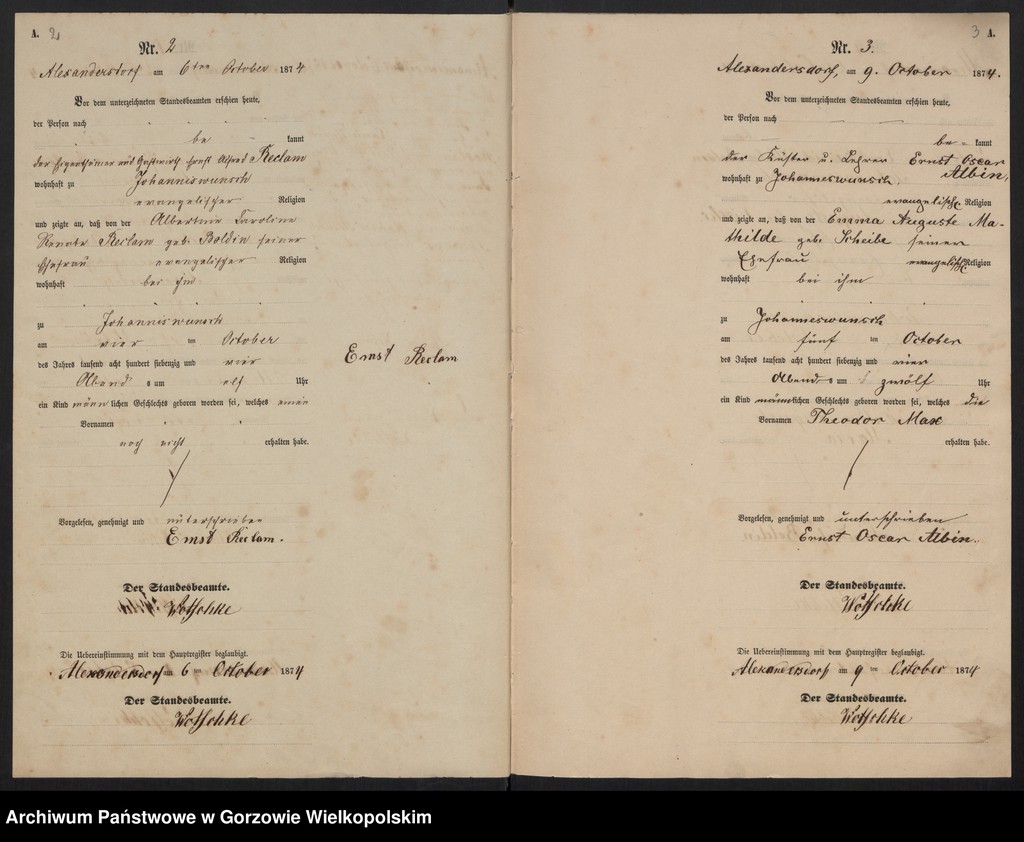 A. 2
Nr. 2
Alexandersdorf am 6ten October 1874
Vor dem unterzeichneten Standesbeamten erschien heute,
der Person nach
be kannt
der Eigenthümer und Gastwirth Ernst Alfred Reclam
wohnhaft zu Johanniswunsch
evangelischer Religion
und zeigte an, daß von der Albertine Caroline
Renate Reclam geb. Boldin seiner
Ehefrau evangelischer Religion
wohnhaft bei ihm
zu Johanniswunsch
am vier ten October
des Jahres tausend acht hundert siebenzig und vier
Abend s um elf Uhr
ein Kind männ lichen Geschlechts geboren worden sei, welches einen
Vornamen
noch nicht erhalten habe.
Vorgelesen, genehmigt und unterschrieben
Ernst Reclam.
Der Standesbeamte.
Wotschke
Die Uebereinstimmung mit dem Hauptregister beglaubigt.
Alexandersdorf am 6 ten October 1874
Der Standesbeamte.
Wotschke
Ernst Reclam
3 A.
Nr. 3.
Alexandersdorf, am 9. October 1874.
Vor dem unterzeichneten Standesbeamten erschien heute,
der Person nach
be = kannt
der Küster u. Lehrer Ernst Oscar
Albin,
wohnhaft zu Johanneswunsch,
evangelisch. Religion
und zeigte an, daß von der Emma Auguste Ma-
thilde geb. Scheibe seiner
Ehefrau evangelisch. Religion
wohnhaft bei ihm
zu Johanneswunsch
am fünf ten October
des Jahres tausend acht hundert siebenzig und vier
Abend s um zwölf Uhr
ein Kind männlichen Geschlechts geboren worden sei, welches die
Vornamen Theodor Max
erhalten habe.
Vorgelesen, genehmigt und unterschrieben
Ernst Oscar Albin.
Der Standesbeamte.
Wotschke
Die Uebereinstimmung mit dem Hauptregister beglaubigt.
Alexandersdorf am 9 ten October 1874
Der Standesbeamte.
Wotschke
Archiwum Państwowe w Gorzowie Wielkopolskim